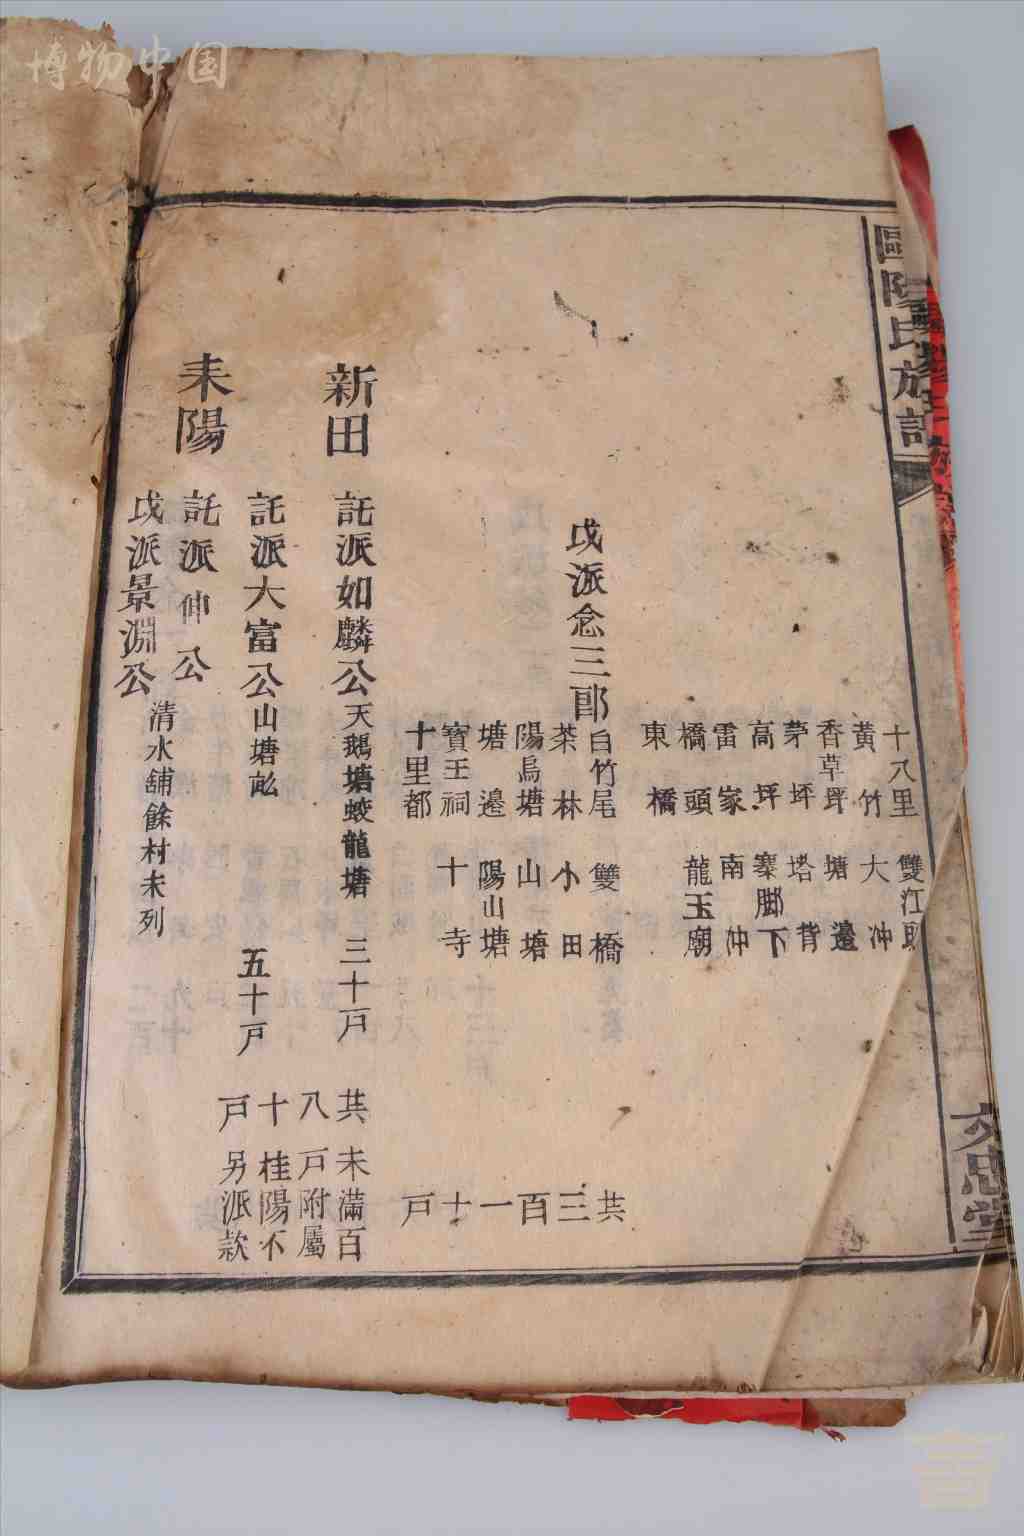 博物中国
歐陽氏族譜
文忠堂
十八里 雙江頭
黄竹 大冲
香草坪 塘邉
茅坪 塔背
高坪 寨脚下
雷家 南冲
橋頭 龍玉廟
東橋
戊派念三郎
白竹尾 雙橋
茶林 小田
陽烏塘 山塘
塘邉 陽山塘
寳王祠 十寺
十里都
共三百一十戸
新田 託派如麟公 天鵝塘蛟龍塘 三十戸
託派大富公 山塘𠙶 五十戸
共八十戸
未滿百戸附屬桂陽不另派款
耒陽 託派仲公
戊派景淵公 清水舖餘村未列